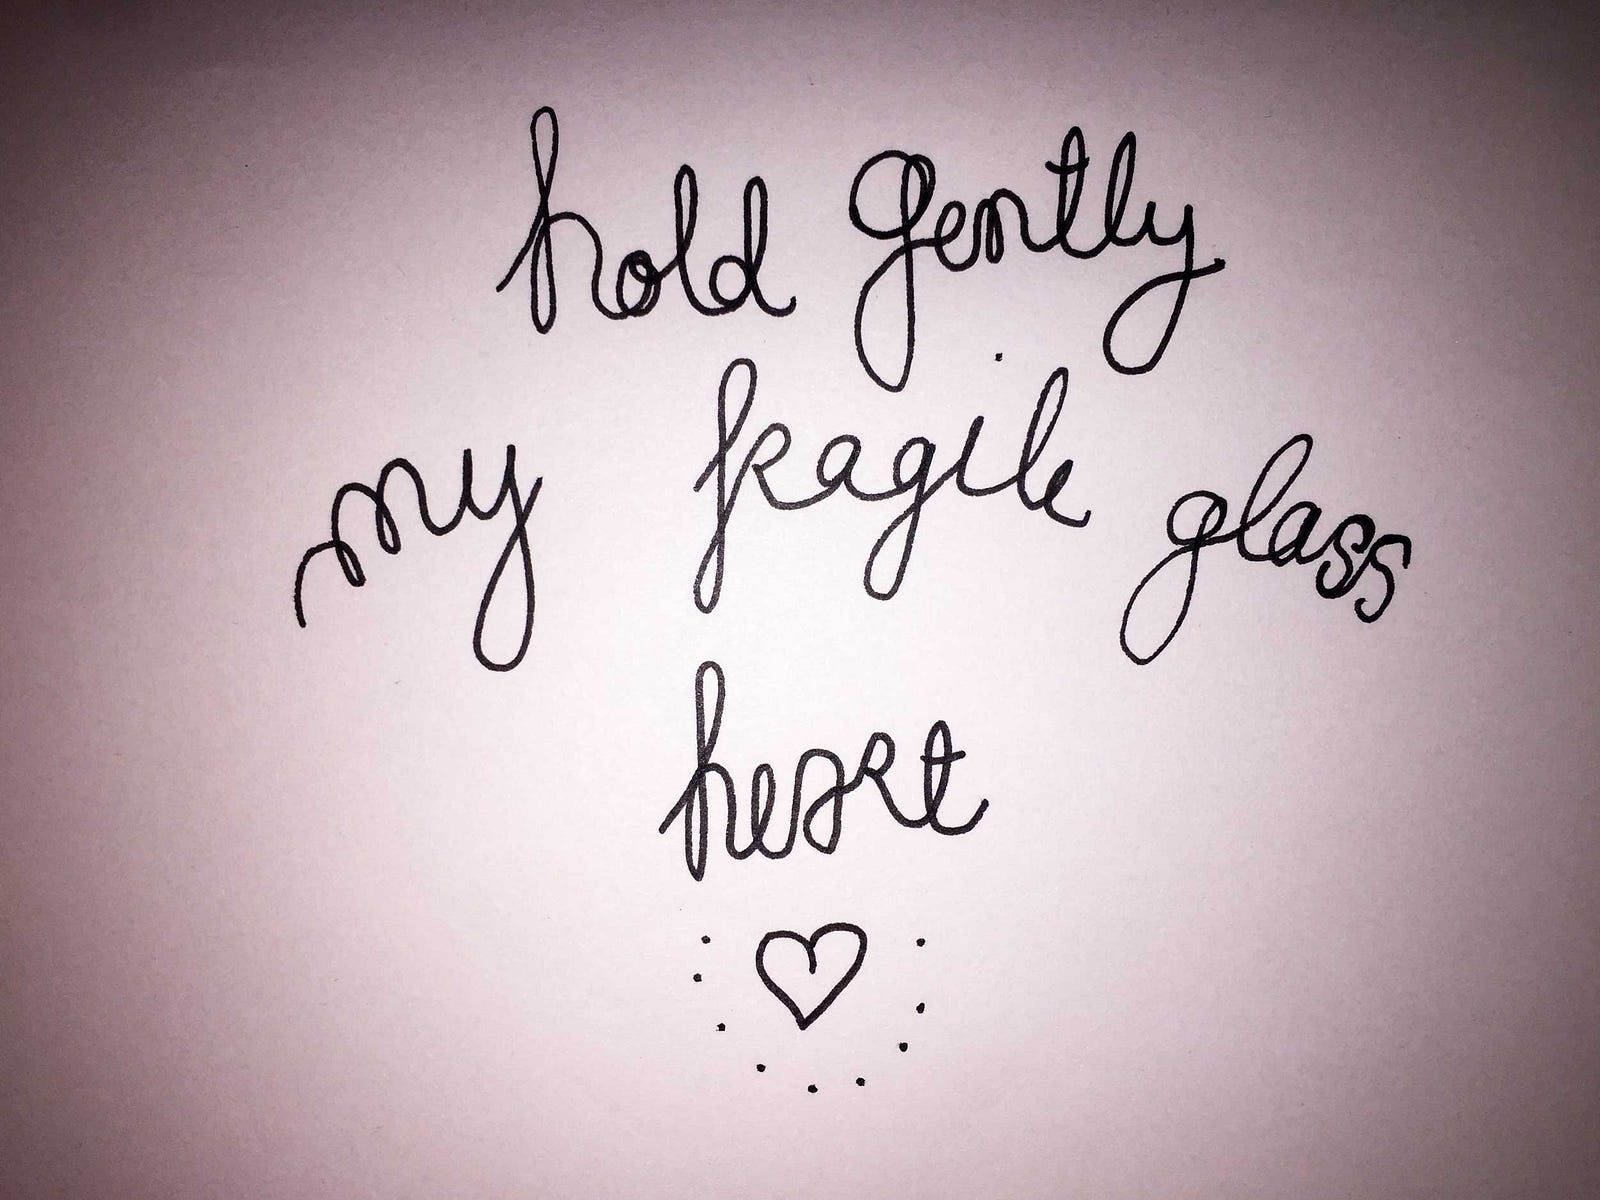 hold gently
my fragile glass
heart